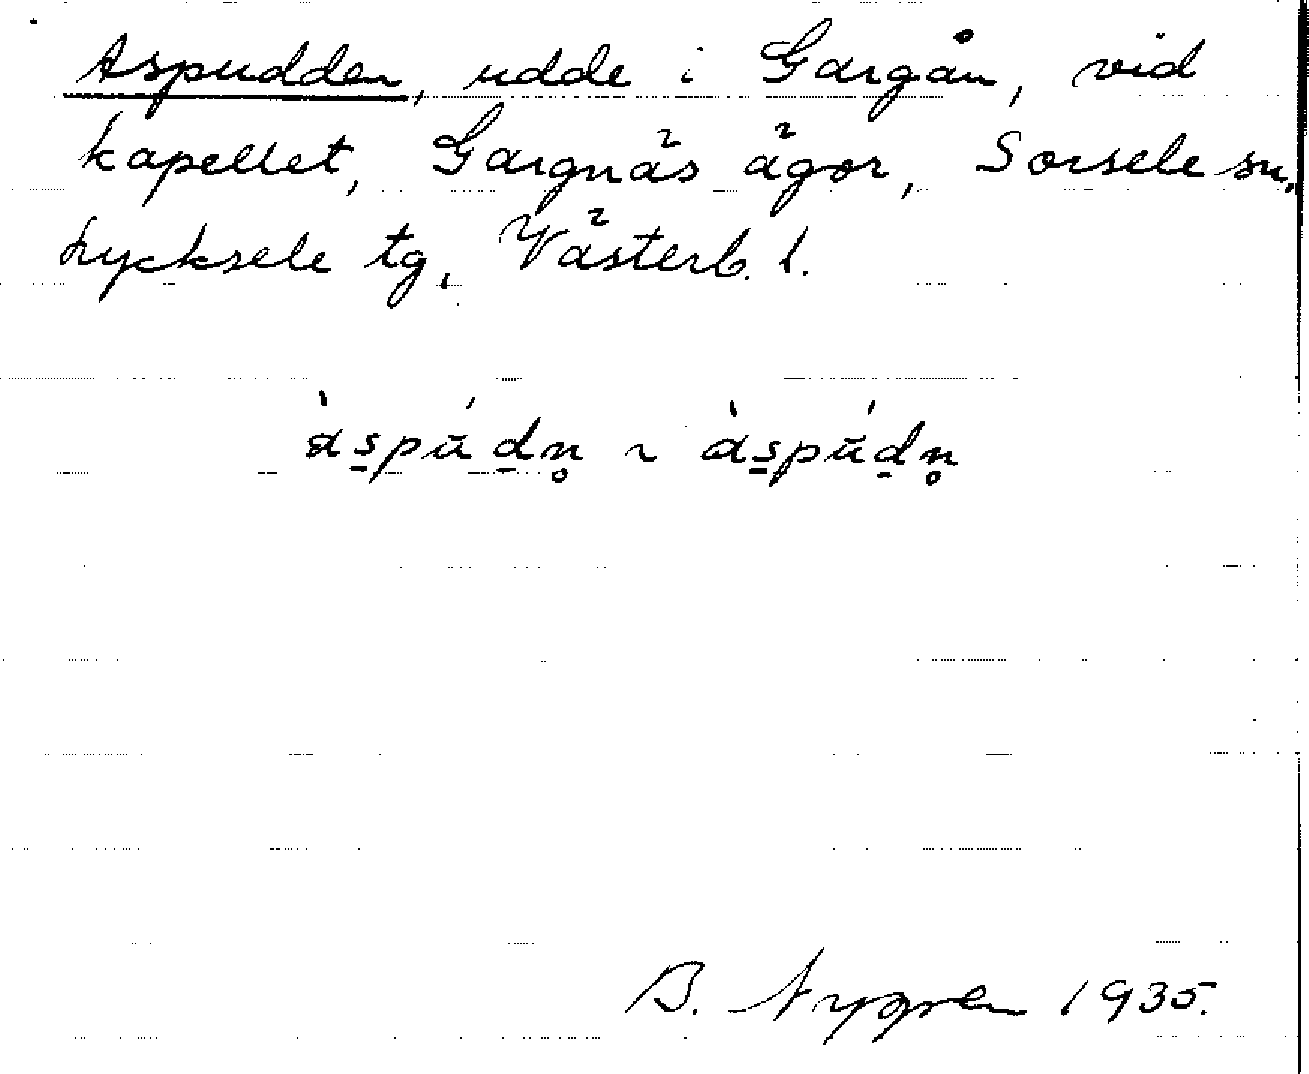 Aspudden, udde i Gargån, vid
kapellet, Gargnäs ägor, Sorsele sn,
Lycksele tg, Västerb. l.
às̱pádn̥ ~ às̱páḏn̥
B. Nygren 1935.